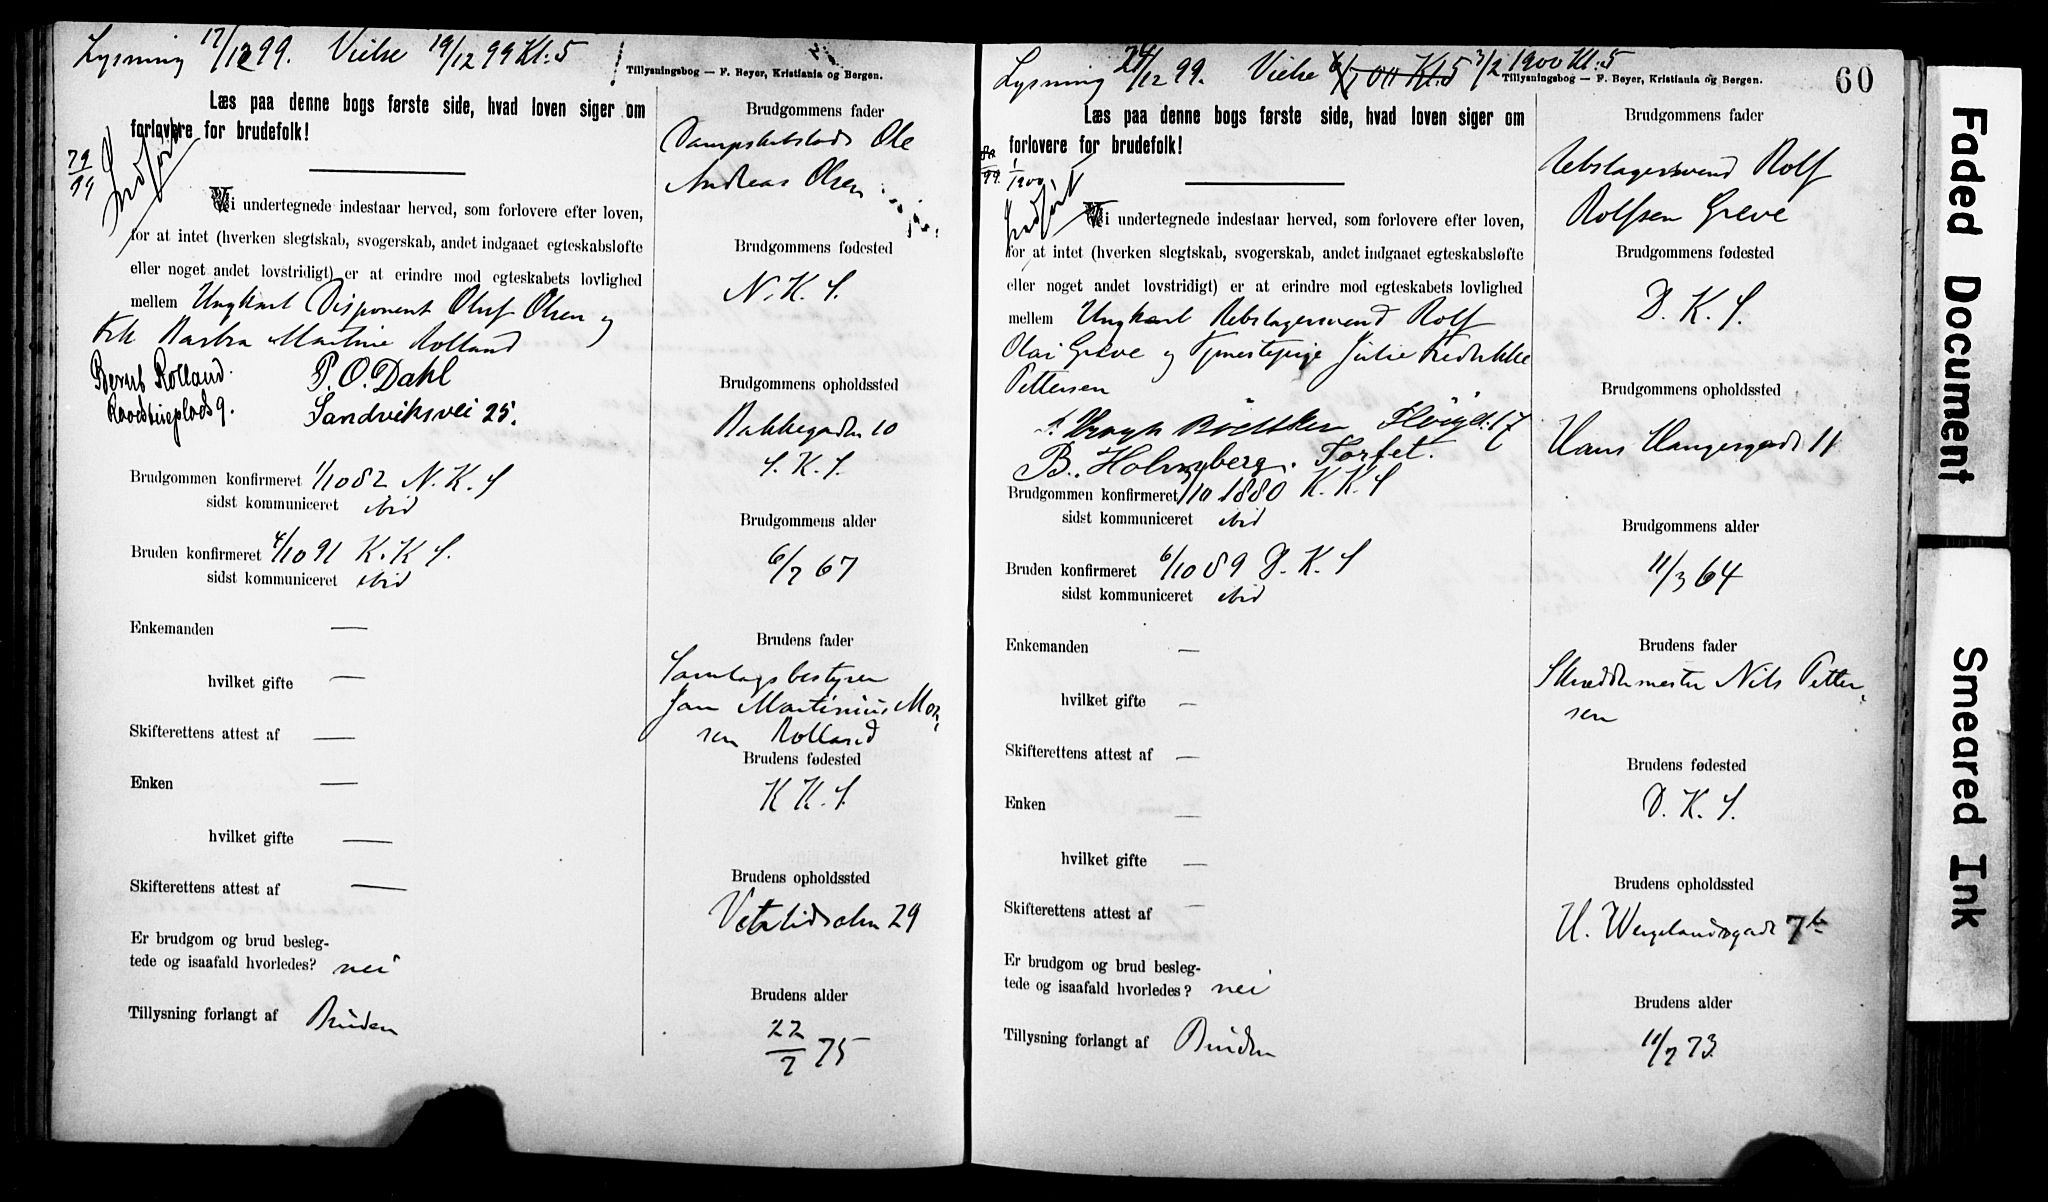 Lysning 17/12 99. Vielse 19/12 99 Kl. 5
Tillysningsbog — F. Beyer, Kristiania og Bergen.
Læs paa denne bogs første side, hvad loven siger om
forlovere for brudefolk!
79/99
Indført
Vi undertegnede indestaar herved, som forlovere efter loven,
for at intet (hverken slegtskab, svogerskab, andet indgaaet egteskabsløfte
eller noget andet lovstridigt) er at erindre mod egteskabets lovlighed
mellem Ungkarl Disponent Oluf Olsen og
Frk Barbra Martine Rolland
Bernt Rolland. P. O. Dahl
Sandviksvei 25.
Brudgommen konfirmeret 1/10 82 N. K. S
sidst kommuniceret ibid
Bruden konfirmeret 4/10 91 K. K S.
sidst kommuniceret ibid
Enkemanden —
hvilket gifte —
Skifterettens attest af —
Enken —
hvilket gifte —
Skifterettens attest af —
Er brudgom og brud besleg-
tede og isaafald hvorledes? nei
Tillysning forlangt af Bruden
Brudgommens fader
Ole
Andreas Olsen
Brudgommens fødested
N. K. S.
Brudgommens opholdssted
Bakkegaden 10
S. K. S.
Brudgommens alder
6/7 67
Brudens fader
Samlagsbestyrer
Jan Martinius Mon-
sen Rolland
Brudens fødested
K K. S.
Brudens opholdssted
29
Brudens alder
22/7 75
Lysning 24/12 99. Vielse 6/1 00 Kl 5 3/2 1900 Kl: 5
Tillysningsbog — F. Beyer, Kristiania og Bergen.
60
Læs paa denne bogs første side, hvad loven siger om
forlovere for brudefolk!
80/99. 1/1900.
Indført
Vi undertegnede indestaar herved, som forlovere efter loven,
for at intet (hverken slegtskab, svogerskab, andet indgaaet egteskabsløfte
eller noget andet lovstridigt) er at erindre mod egteskabets lovlighed
mellem Ungkarl Rebslagersvend Rolf
Olai Greve og Tjenestepige Julie Fredrikke
Pettersen
17
B. Holmberg. Torvet.
Brudgommen konfirmeret 3/10 1880 K. K. S
sidst kommuniceret ibid
Bruden konfirmeret 6/10 89 D. K. S
sidst kommuniceret ibid
Enkemanden —
hvilket gifte —
Skifterettens attest af —
Enken —
hvilket gifte —
Skifterettens attest af —
Er brudgom og brud besleg-
tede og isaafald hvorledes? nei
Tillysning forlangt af Bruden
Brudgommens fader
Rebslagersvend Rolf
Rolfsen Greve
Brudgommens fødested
D. K. S.
Brudgommens opholdssted
Hans Haugesgade 11
Brudgommens alder
11/3 64
Brudens fader
Skræddermester Nils Petter-
sen
Brudens fødested
D. K. S.
Brudens opholdssted
H. Wergelandsgade 7b
Brudens alder
11/7 73
Faded Document
Smeared Ink